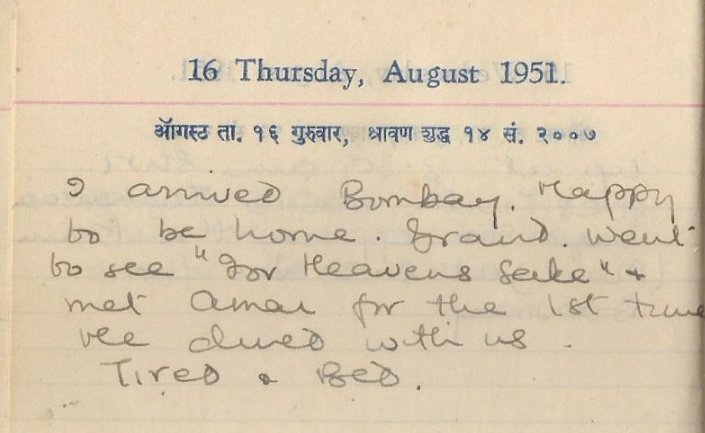 16 Thursday, August 1951.
ऑगस्ट ता. १६ गुरुवार, श्रावण शुद्ध १४ सं. २००७
I arrived Bombay. Happy
to be home. Grand. Went
to see "For Heavens Sake" &
met Amar for the 1st time
He dined with us.
Tired & Bed.